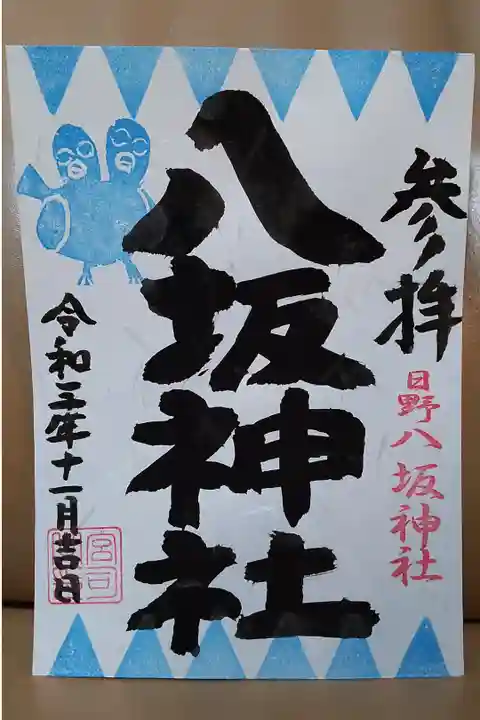 参拝
日野八坂神社
八坂神社
令和三年十一月吉日